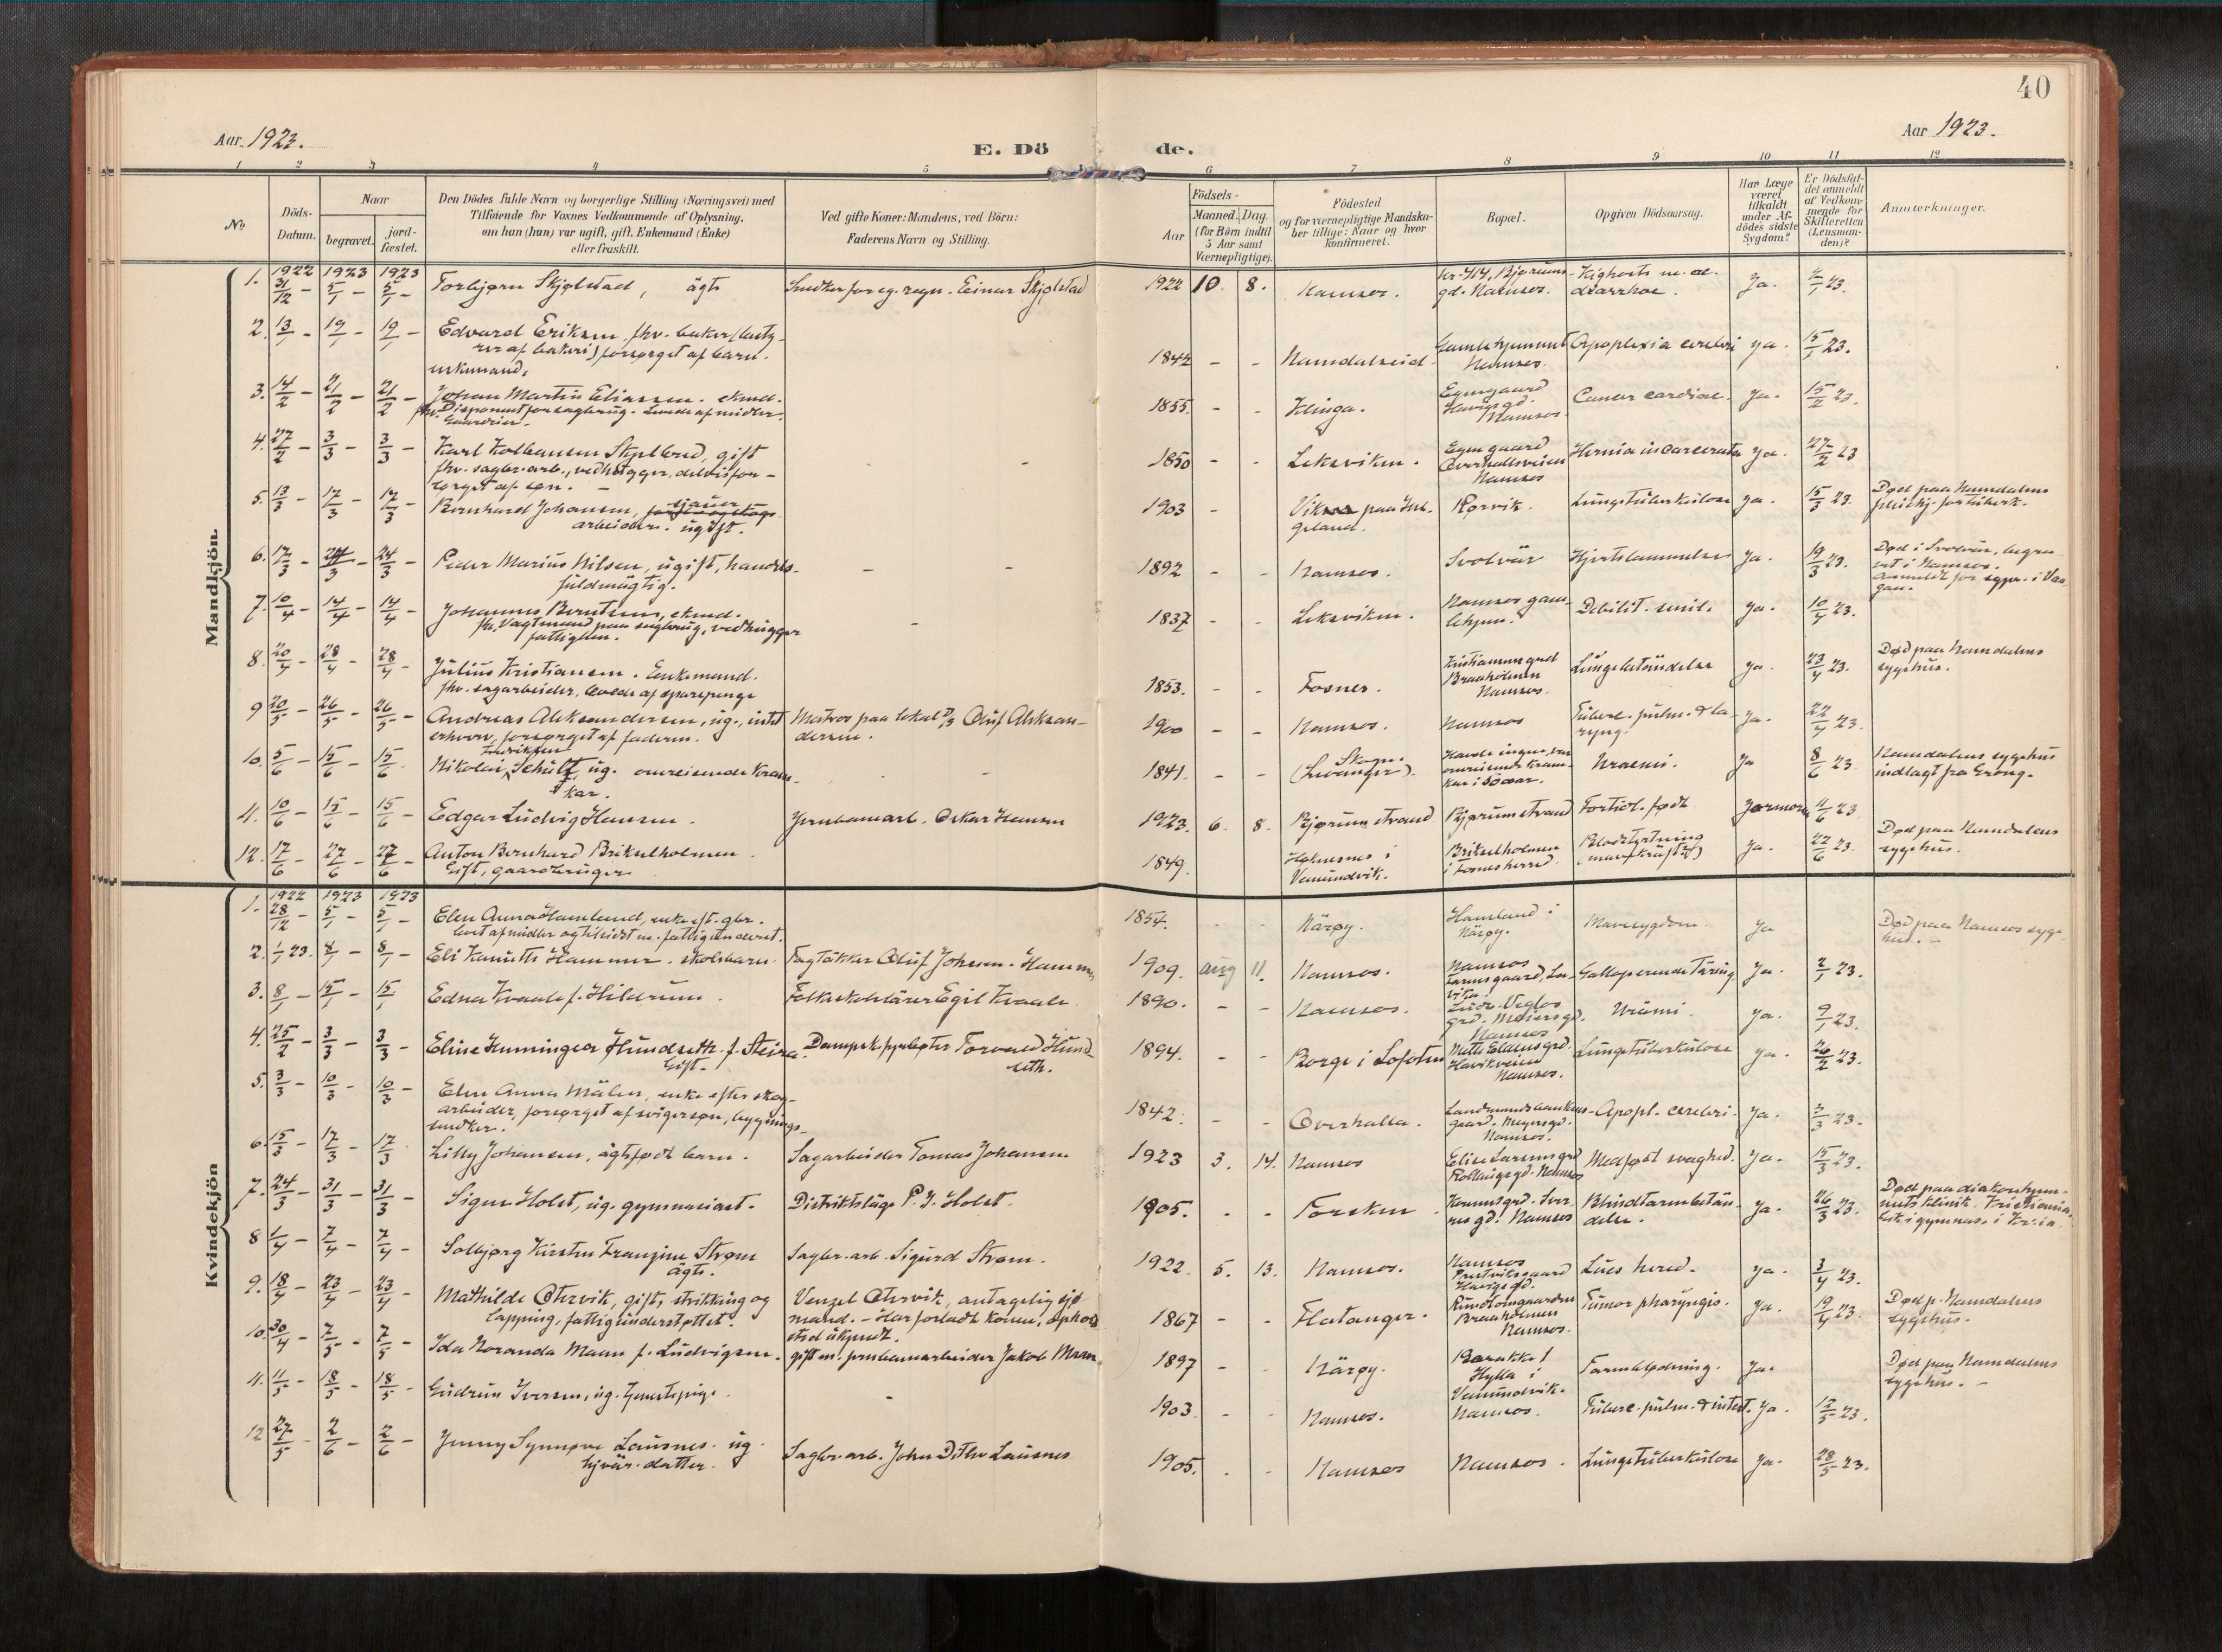 40
Aar 1923.
E. Döde.
Aar 1923.
1 2 3 4 5 6 7 8 9 10 11 12
No.
Döds-
Datum.
Naar
begravet.
jord-
fæstet.
Den Dödes fulde Navn og borgerlige Stilling (Næringsvei) med
Tilföiende for Voxnes Vedkommende af Oplysning,
om han (hun) var ugift, gift, Enkemand (Enke)
eller fraskilt.
Ved gifte Koner: Mandens, ved Börn:
Faderens Navn og Stilling.
Födsels-
Aar
Maaned. Dag.
(for Börn indtil
5 Aar samt
Værnepligtige).
Födested
og for værnepligtige Mandska-
ber tillige: Naar og hvor
konfirmeret.
Bopæl.
Opgiven Dödsaarsag.
Har Læge
været
tilkaldt
under Af-
dödes sidste
Sygdom?
Er Dödsfal-
det anmeldt
af Vedkom-
mende for
Skifteretten
(Lensman-
den)?
Anmærkninger.
Mandkjön.
1. 1922 31/12 - 1923 5/1 - 1923 5/1 - Torbjørn Skjølstad, ägte Snedker for eg. regn. Einar Skjølstad 1922 10. 8. Namsos. Bjørums-
gd. Namsos. diarrhoe. Ja. 2/1 23.
2. 13/1 - 19/1 - 19/1 - Edvard Eriksen fhv. baker (besty-
rer af bakeri) forsørget af barn.
enkemand. 1842 - - Namdalseid Gamlehjemmet
Namsos. Apoplexia cerebri ya. 15/1 23.
3. 14/2 - 21/2 - 21/2 - Johan Martin Eliassen. ekmd.
fhv. Disponent for sagbrug. Levede af midler. 1855. - - Klinga. Egen gaard
Havigsgd.
Namsos. Cancer cardiae. Ja. 15/2 23.
4. 27/2 - 3/3 - 3/3 - Karl Kolbensen Skjelbred, gift
fhv. sagbr. arb., vedhugger, delvis for-
sørget af søn. - 1850 - - Leksviken. Egen gaard
Overhallsveien
Namsos Hernia incarcerata ya. 27/2 23
5. 13/3 - 17/3 - 17/3 - Bernhard Johansen,
arbeider. ugift. 1903 - Vikna paa Ind-
geland. Rørvik. Lungetuberkulose ya. 15/3 23. Død paa Namdalens
pleiehj. for tuberk.
6. 17/3 - 24/3 - 24/3 - Peder Marius Nilsen, ugift, handels-
fuldmägtig. 1892 - - Namsos. Svolvär Hjertelammelse Ja. 19/3 23. Død i Svolvär, begra-
vet i Namsos.
Anmeldt for sypr. i Vaa-
gan.
7. 10/4 - 14/4 - 14/4 - Johannes Berntsen, ekmd.
fhv. Vagtmand paa sagbrug, vedhugger
fattiglem. 1837 - - Leksviken. Namsos gam-
lehjem. Debilit. senil. Ja. 10/4 23.
8. 20/4 - 28/4 - 28/4 - Julius Kristiansen. Enkemand.
fhv. sagarbeider, levede af sparepenge 1853. - - Fosnes. Kristiansengaard
Braaholmen
Namsos. Lungebetändelse ya. 23/4 23. Død paa Namdalens
sygehus.
9 20/5 - 26/5 - 26/5 - Andreas Aleksandersen, ug., intet
erhverv, forsørget af faderen. Matros paa lokal D/S Oluf Aleksan-
dersen. 1900 - - Namsos. Namsos Tuberc. pulm. & la-
ryng. Ja. 22/4 23.
10. 5/6 - 15/6 - 15/6 Nikolai Fredriksen Schultz, ug. omreisende kram-
kar. 1841. - - Skogn
(Levanger). Havde ingen, var
omreisende kram-
kar i 50 aar. Uraemi. Ja 8/6 23 Namdalens sygehus
indlagt fra Grong.
11. 10/6 - 15/6 - 15/6 - Edgar Ludvig Hansen. Jernbanearb. Oskar Hansen 1923. 6. 8. Bjørumstrand Bjørumstrand Fortidl. født Jormora 11/6 23
12. 17/6 - 27/6 - 27/6 - Anton Bernhard Brikselholmen
Gift, gaardbruger 1849. i
Vemundvik. Brikselholmen
i Fosnes herred. Blodstyrtning
(mavekräft?) Ja. 22/6 23. Død paa Namdalens
sygehus.
Kvindekjön
1. 1922 28/12 - 1923 5/1 - 1923 5/1 - Elen Anna Hamland, enke eft. gbr.
levet af midler og tilsidst m. fattigunderst. 1854. - - Närøy. Hamland i
Närøy. Mavesygdom. Ja Død paa Namsos syge-
hus. -
2. 1/1 23. 8/1 - 8/1 - Eli Kanutte Hammer. skolebarn. Tagtäkker Oluf Johnsen Hammer 1909. aug 11. Namsos. Namsos Galloperende Täring Ja. 2/1 23.
3. 8/1 - 15/1 - 15/1 Edna Kvaale f. Hildrum. Folkeskolelärer Egil Kvaale 1890. - - Namsos. Namsos Urämi. ya. 9/1 23.
4. 25/2 - 3/3 - 3/3 - Elise Henningea Hundseth f. Steira
Gift. Dampsk. fyrbøter Torvald Hund-
seth. 1894. - - Borge i Lofoten Havikveien
Namsos. Lungetuberkulose ya. 26/2 23.
5. 3/3 - 10/3 - 10/3 - Elen Anna Mälen, enke efter skog-
arbeider, forsørget af svigersøn, bygnings-
snedker. 1842. - - Overhalla. Landmandsbankens
gaard. Meyersgd.
Namsos. Apopl. cerebri. Ja. 3/3 23.
6. 15/3 - 17/3 - 17/3 Lilly Johansen, ägtefødt barn. Sagarbeider Tomas Johansen 1923 3. 14. Namsos Elise Larsens grd
Namsos Medfødt svaghed. Ja. 15/3 23.
7. 24/3 - 31/3 - 31/3 - Signe Holst, ug. gymnasiast. Distriktsläge P. J. Holst. 1905. - - Forsten Namsos Blindtarmbetän-
delse. Ja. 26/3 23. Død paa diakonhjem-
mets klinik Kristiania.
Gik i gymnas. i Kr.ia
8 1/4 - 7/4 - 7/4 - Solbjørg Kirsten Franzine Strøm
ägte. Sagbr. arb. Sigurd Strøm. 1922. 5. 13. Namsos. Namsos
Havigsgd. Lues hered. ya. 3/4 23.
9. 18/4 - 23/4 - 23/4 - Mathilde Otervik, gift, strikking og
lapping, fattigunderstøttet. Venzel Otervik, antagelig sjø-
mand. - Har forladt konen, ophold
sted ukjendt. 1867 - - Flatanger. Braaholmen
Namsos. Tumor pharyngis. ya. 19/4 23. Død p. Namdalens
sygehus.
10. 30/4 - 7/5 - 7/5 - Ida Noranda Maan f. Ludvigsen. gift m. jernbanearbeider Jakob Maan 1897 - - Närøy. Barakke 1
Hylla i
Vemundvik. Tarmblødning. Ja. Død paa Namdalens
sygehus. -
11. 11/5 - 18/5 - 18/5 - Gudrun Iversen, ug. tjenestepige. 1903 - - Namsos. Namsos. Tuberc. pulm. & intest. Ja. 12/5 23.
12 27/5 - 2/6 - 2/6 - Jenny Synnøve Lausnes. ug
hjvär. datter. Sagbr. arb. Johan Lausnes 1905. - - Namsos Namsos. Lungetuberkulose Ja. 28/5 23.